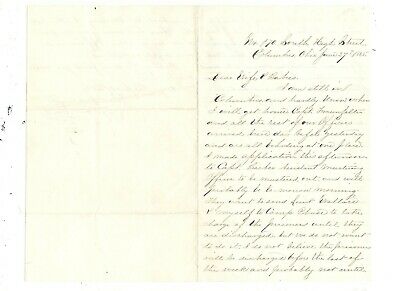 No 170 South High Street
Columbus, Ohio June 27th 1865
Dear Wife & babies
I am still in
Columbus and hardly know when
I will get home Capt
and all the rest of our officers
arrived here day before yesterday
and are all boarding at one place
I made application this afternoon
to Capt Assistant Mustering
Officer to be mustered out and will
probably be to-morrow morning
They want to send Lieut Wallace
& myself to Camp Chase to take
charge of the prisoners until they
are discharged but we do not want
to do it, I do not believe the prisoners
will be discharged before the last of
the week and probably not until